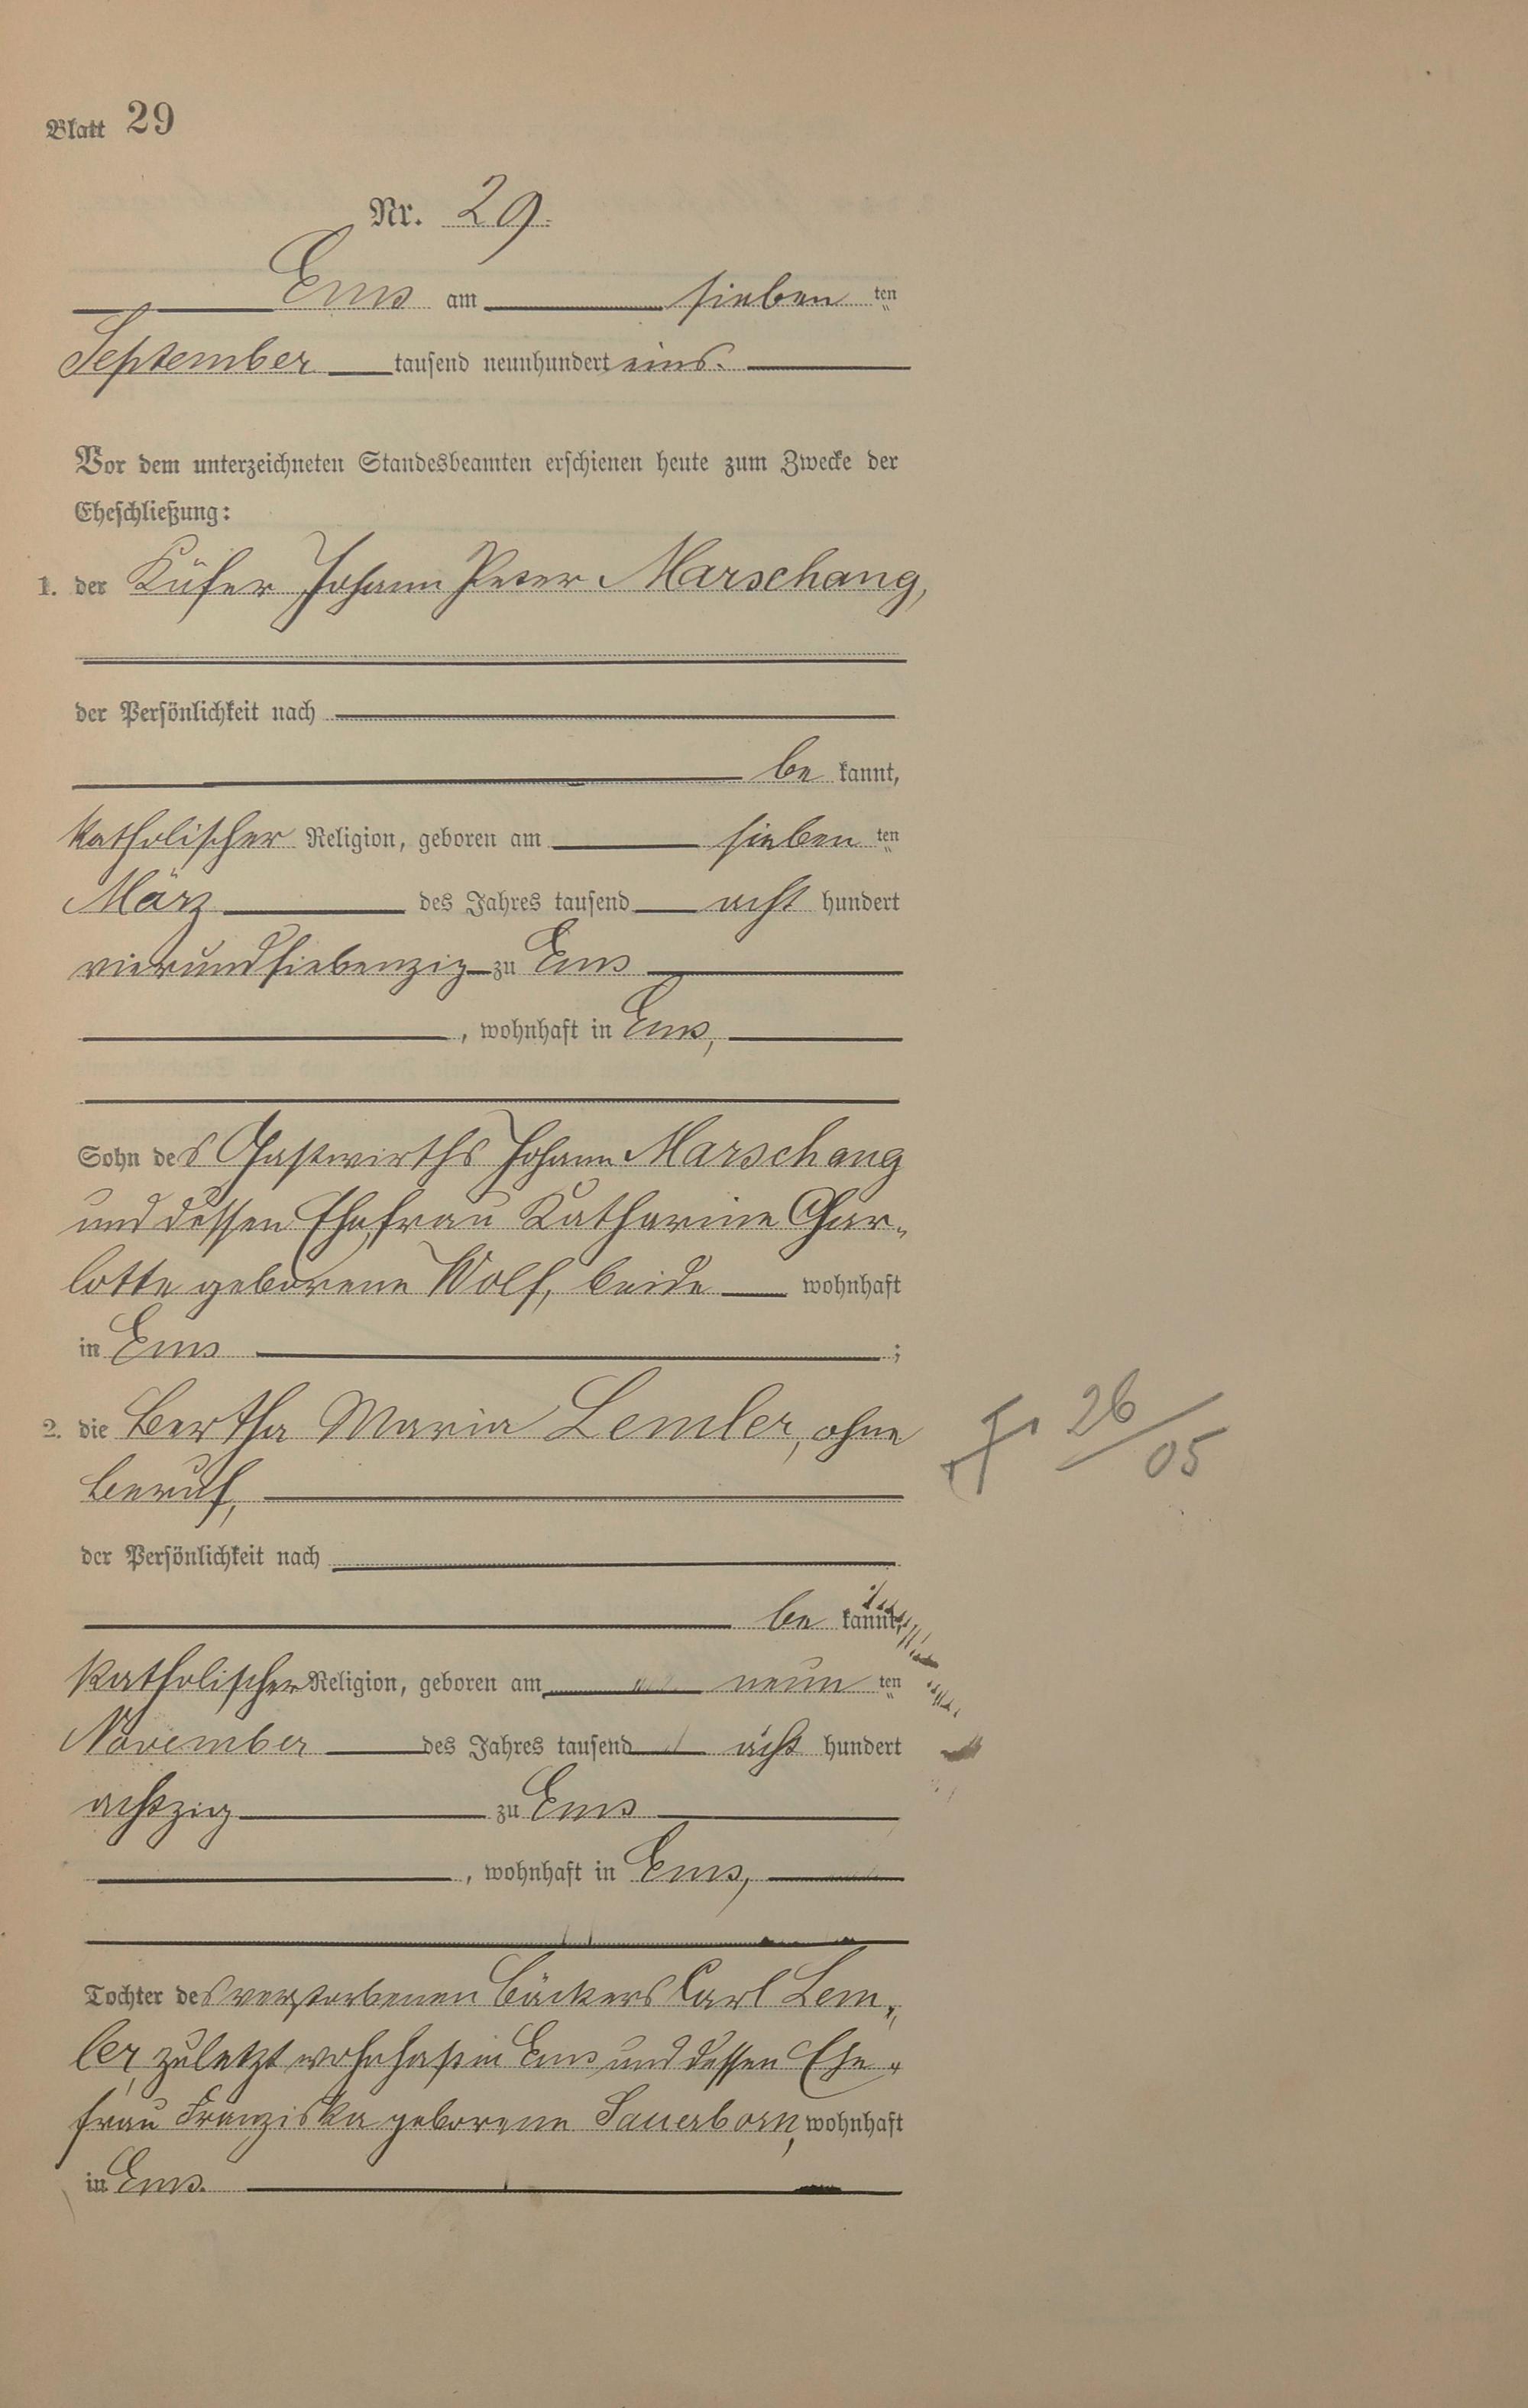 Blatt 29
Nr. 29.
Ems am sieben ten
September tausend neunhundert eins.
Vor dem unterzeichneten Standesbeamten erschienen heute zum Zwecke der
Eheschließung:
1. der Küfer Johann Peter Marschang,
der Persönlichkeit nach
be kannt,
katholischer Religion, geboren am sieben ten
März des Jahres tausend acht hundert
vierundsiebenzig zu Ems
, wohnhaft in Ems,
Sohn des Gastwirths Johann Marschang
und dessen Ehefrau Katharine Char-
lotte geborene Wolf, beide wohnhaft
in Ems ;
2. die Bertha Maria Lemler, ohne
Beruf,
der Persönlichkeit nach
be kannt,
katholischer Religion, geboren am neun ten
November des Jahres tausend acht hundert
achtzig zu Ems
, wohnhaft in Ems,
Tochter des verstorbenen Bäckers Carl Lem-
ler, zuletzt wohnhaft in Ems und dessen Ehe-
frau Franziska geborene Sauerborn, wohnhaft
in Ems.
26/05